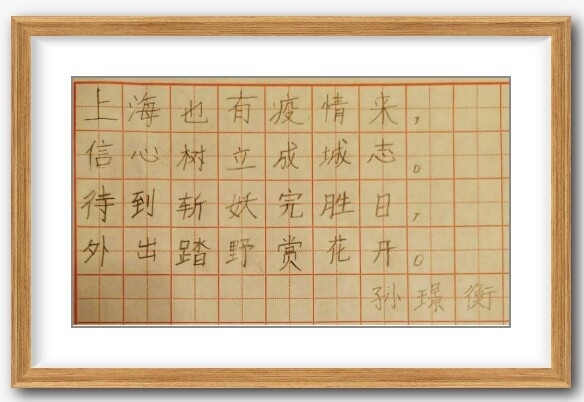 上海也有疫情来，
信心树立成城志。
待到斩妖完胜日，
外出踏野赏花开。
孙璟衡